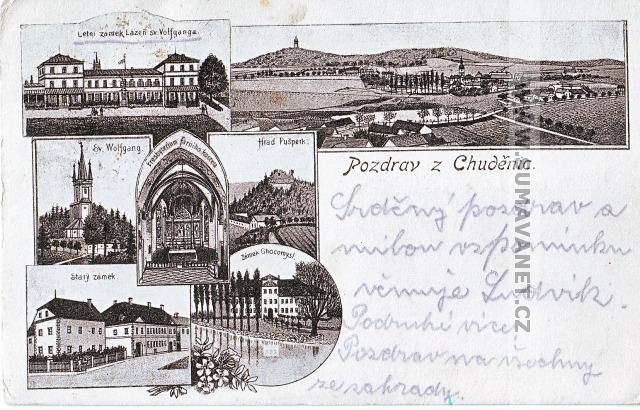 Letní zámek Lázeň sv. Wolfganga.
Sv. Wolfgang.
Presbyterium farního kostela
Hrad Pušperk.
Pozdrav z Chuděnic.
Starý zámek.
Zámek Chocomyšl.
Srdečný pozdrav a
milou vzpomínku
věnuje Ludvík.
Podruhé více.
Pozdrav na všechny
ze zahrady.
WWW.SUMAVANET.CZ